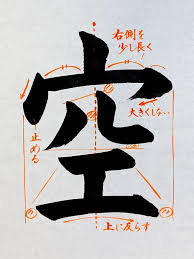 右側を
少し長く
空
大きくしない
止める
上に反らす